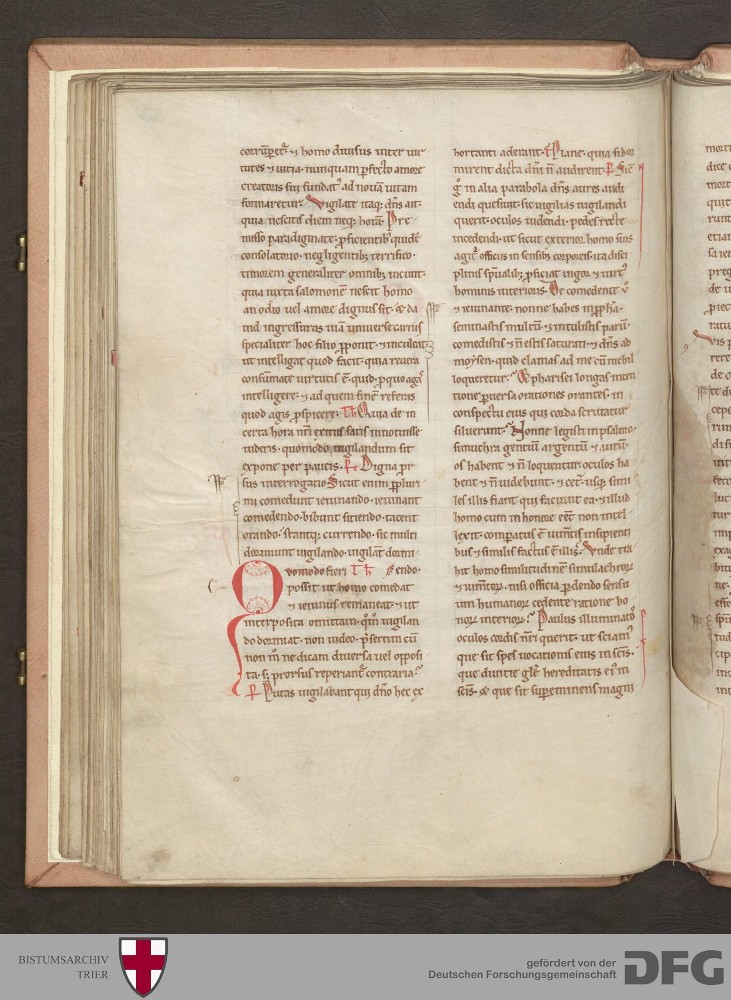 corrūpet᷑ ⁊ homo diuisus inter uir
tutes ⁊ uitia. nunquam pfecto amore
creatoris sui fundat᷒ ad nouā uitam
formaretur. Vigilate itaq; dn̄s ait.
quia nescitis diem neq; horā. Pre
misso paradigmate. pficientib; quidē
consolatorio. negligentib; terrifico.
timorem generaliter omnib; incutit.
quia iuxta salomonē nescit homo
an odio uel amore dignus sit. ⁊ da
uid ingressurus uiā uniuerse carnis
specialiter hoc filio pponit. ⁊ inculcat.
ut intelligat quod facit. quia reuera
consūmate uirtutis ē. quid. p quo agat᷑
intelligere. ⁊ ad quem finē referas
quod agis pspicere. Th Quia de in
certa hora nr̄i exitus satis innotuisse
uideris. quomodo uigilandum sit
expone per paucis. P Digna pr
sus interrogatio. Sicut enim pplur
mi comedunt ieiunando. ieiunant
comedendo. bibunt sitiendo. tacent
orando. stantq; currendo. sic multi
dormiunt uigilando. uigilāt dormi
Quomodo fieri Th endo.
possit ut homo comedat
⁊ ieiunus remaneat. ⁊ ut
interposita omittam. qm̄ uigilan
do dormiat. non uideo. psertim cū
non m̄ ne dicam diuersa uel opposi
ta. s; prorsus reperiant᷑ contraria.
P Putas uigilabant qui dn̄o hec ex
hortanti aderant. Th Plane. quia si dor
mirent dicta dn̄i n̄ audirent. P Sic
g᷒ in alia parabola dn̄s aures audi
endi quesiuit. sic uigilias uigilandi
querit. oculos uidendi. pedes recte
incedendi. ut sicut exterior homo suis
agit᷑ officiis in sensib; corporeis. ita disci
plinis sp̄ualib; pficiat uigor ⁊ uirt᷒
hominis interioris. De comedente ů
⁊ ieiunante. nonne habes in ppħa.
seminastis multū. ⁊ intulistis parū.
comedistis ⁊ n̄ estis saturati. ⁊ dn̄s ad
moysen. quid clamas ad me cū nichil
loqueretur. Et pharisei longas inten
tione puersa orationes orantes. in
conspectu eius qui corda scrutatur
siluerunt. Nonne legisti in psalmo.
simulachra gentiū argentū ⁊ aurū.
os habent ⁊ n̄ loquentur. oculos ha
bent ⁊ n̄ uidebunt. ⁊ cet᷑. usq; simi
les illis fiant qui faciunt ea. ⁊ illud
homo cum in honore eēt non intel
lexit. comparatus ē iumētis insipienti
bus ⁊ similis factus ē illis. Vnde tra
hit homo similitudinē simulachror
⁊ iumētor. nisi officia pdendo sensu
um humanor cedente ratione bo
nor interior. Paulus illuminatos
oculos cordis nr̄i querit. ut sciam᷒
que sit spes uocationis eius in sc̄is.
que diuitie gl̄e hereditatis ei᷒ in
sc̄is. ⁊ que sit supeminens magni
BISTUMSARCHIV
TRIER
gefördert von der
Deutschen Forschungsgemeinschaft
DFG